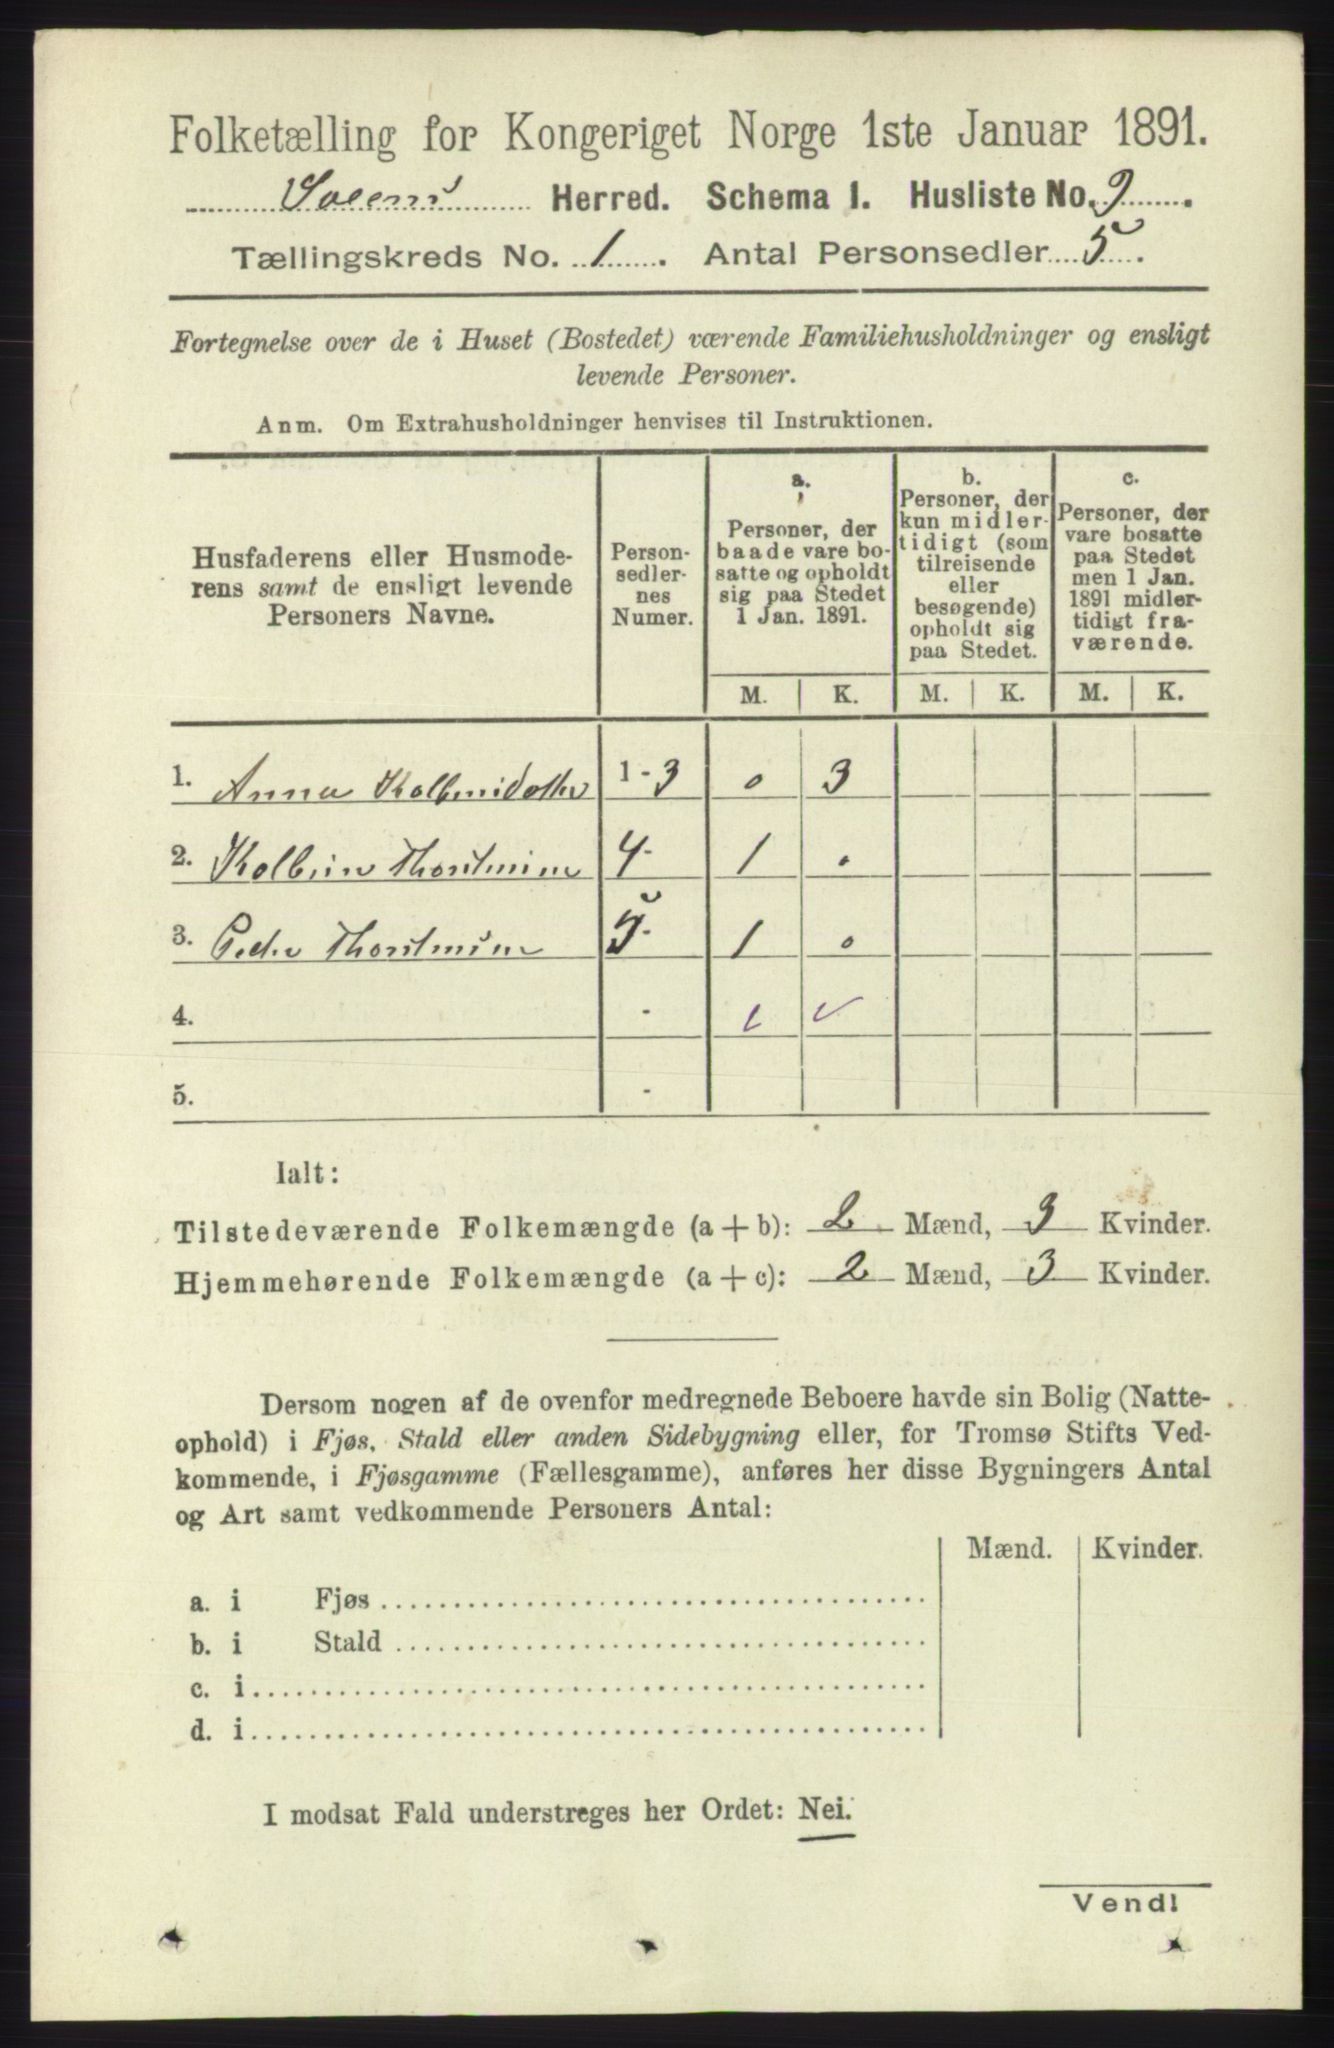 Folketælling for Kongeriget Norge 1ste Januar 1891.
Herred. Schema I. Husliste No. 9.
Tællingskreds No. 1. Antal Personsedler 5.
Fortegnelse over de i Huset (Bostedet) værende Familiehusholdninger og ensligt
levende Personer.
Anm. Om Extrahusholdninger henvises til Instruktionen.
Husfaderens eller Husmode-
rens samt de ensligt levende
Personers Navne.
Person-
sedler-
nes
Numer.
a.
Personer, der
baade vare bo-
satte og opholdt
sig paa Stedet
1 Jan. 1891.
b.
Personer, der
kun midler-
tidigt (som
tilreisende
eller
besøgende)
opholdt sig
paa Stedet.
c.
Personer, der
vare bosatte
paa Stedet
men 1 Jan.
1891 midler-
tidigt fra-
værende.
M. K. M. K. M. K.
1. Anna 1-3 0 3
2. 4- 1 0
3. 5- 1 0
4. -
5. -
Ialt:
Tilstedeværende Folkemængde (a + b): 2 Mænd, 3 Kvinder.
Hjemmehørende Folkemængde (a + c): 2 Mænd, 3 Kvinder.
Dersom nogen af de ovenfor medregnede Beboere havde sin Bolig (Natte-
ophold) i Fjøs, Stald eller anden Sidebygning eller, for Tromsø Stifts Ved-
kommende, i Fjøsgamme (Fællesgamme), anføres her disse Bygningers Antal
og Art samt vedkommende Personers Antal:
Mænd. Kvinder.
a. i Fjøs
b. i Stald
c. i
d. i
I modsat Fald understreges her Ordet: Nei.
Vend!